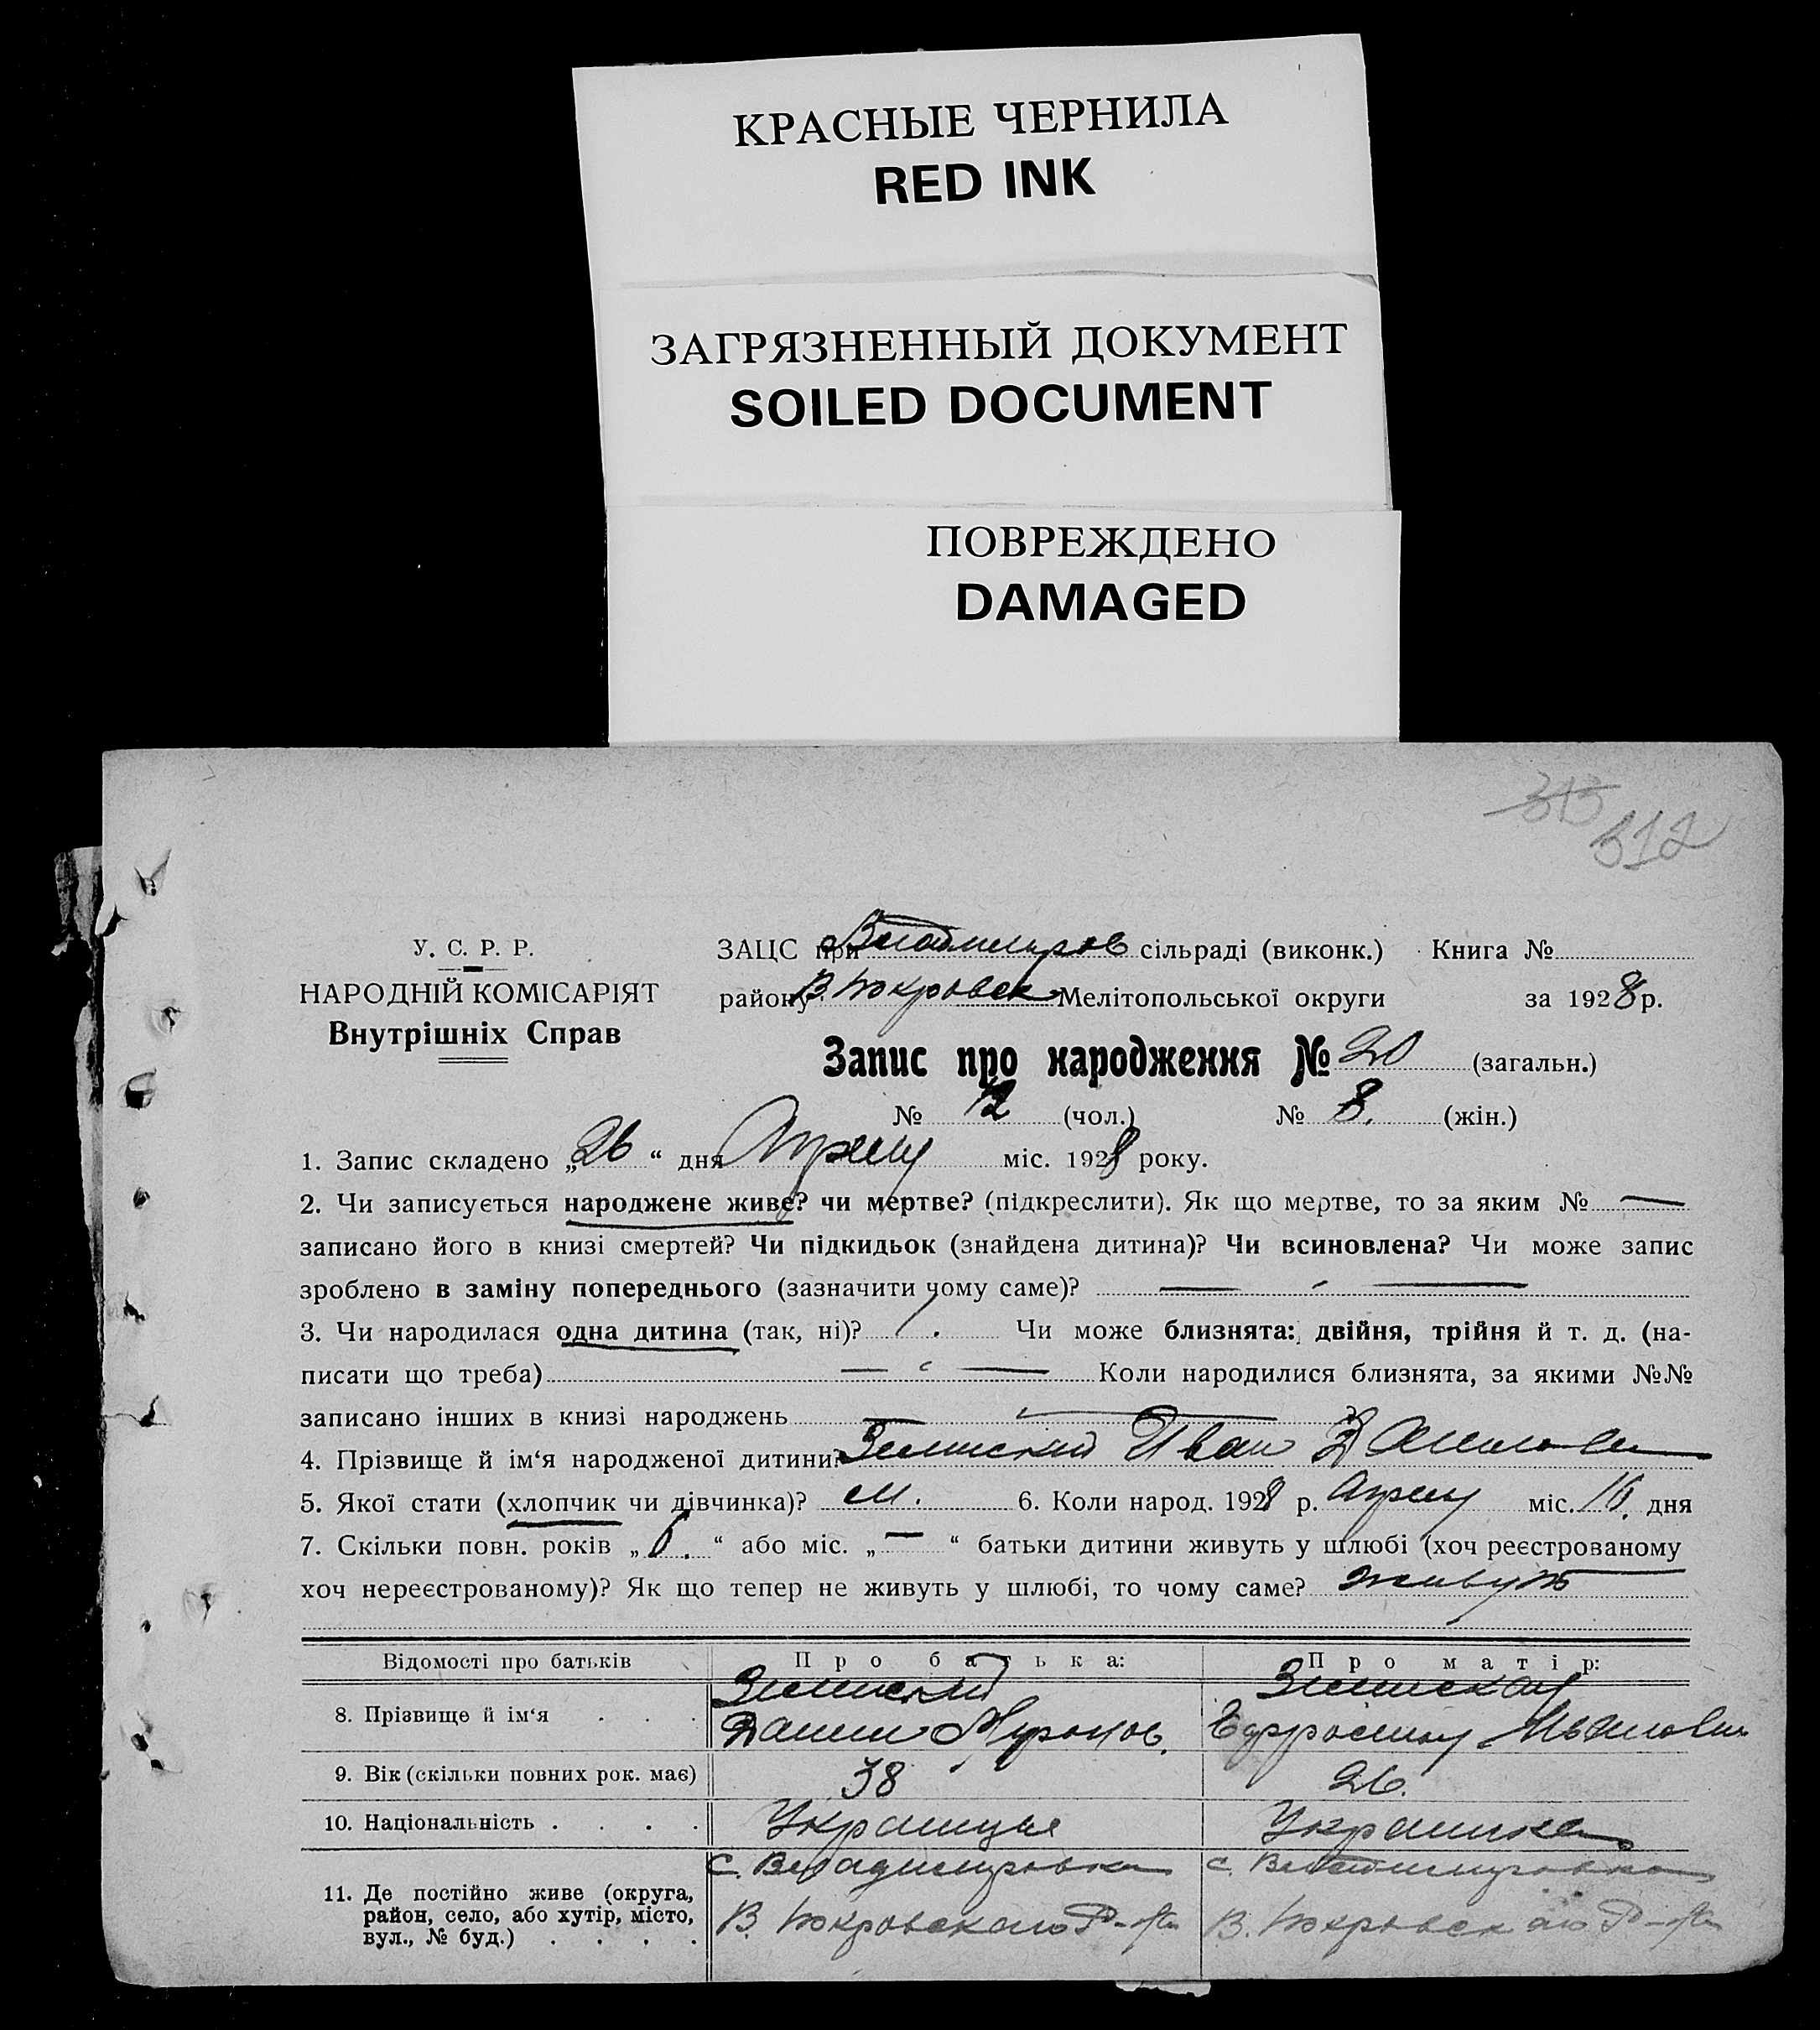 КРАСНЫЕ ЧЕРНИЛА
RED INK
ЗАГРЯЗНЕННЫЙ ДОКУМЕНТ
SOILED DOCUMENT
ПОВРЕЖДЕНО
DAMAGED
313
312
У. С. Р. Р.
НАРОДНІЙ КОМІСАРІЯТ
Внутрішніх Справ
ЗАЦС при Владимиров сільраді (виконк.) Книга №
району В. Покровск Мелітопольської округи за 1928 р.
Запис про народження № 20 (загальн.)
№ 12 (чол.) № 8. (жін.)
1. Запис складено „26“ дня Апреля міс. 1928 року.
2. Чи записується народжене живе? чи мертве? (підкреслити). Як що мертве, то за яким № —
записано його в книзі смертей? Чи підкидьок (знайдена дитина)? Чи всиновлена? Чи може запис
зроблено в заміну попереднього (зазначити чому саме)? —
3. Чи народилася одна дитина (так, ні)? 1. Чи може близнята: двійня, трійня й т. д. (на-
писати що треба) — Коли народилися близнята, за якими №№
записано інших в книзі народжень —
4. Прізвище й ім‘я народженої дитини? Иван
5. Якої стати (хлопчик чи дівчинка)? м. 6. Коли народ. 1928 р. Апреля міс. дня
7. Скільки повн. років „ “ або міс. „—“ батьки дитини живуть у шлюбі (хоч реєстрованому
хоч нереєстрованому)? Як що тепер не живуть у шлюбі, то чому саме? живуть
Відомості про батьків Про батька: Про матір:
8. Прізвище й ім‘я . . .
Данил Миронов. Ефросинья
9. Вік (скільки повних рок. має) 38 26.
10. Національність . . . . Украинцы Украинка
11. Де постійно живе (округа,
район, село, або хутір, місто,
вул., № буд.) . . . .
с. Владимировка с. Владимировка
В. Покровского Р-на В. Покровского Р-на